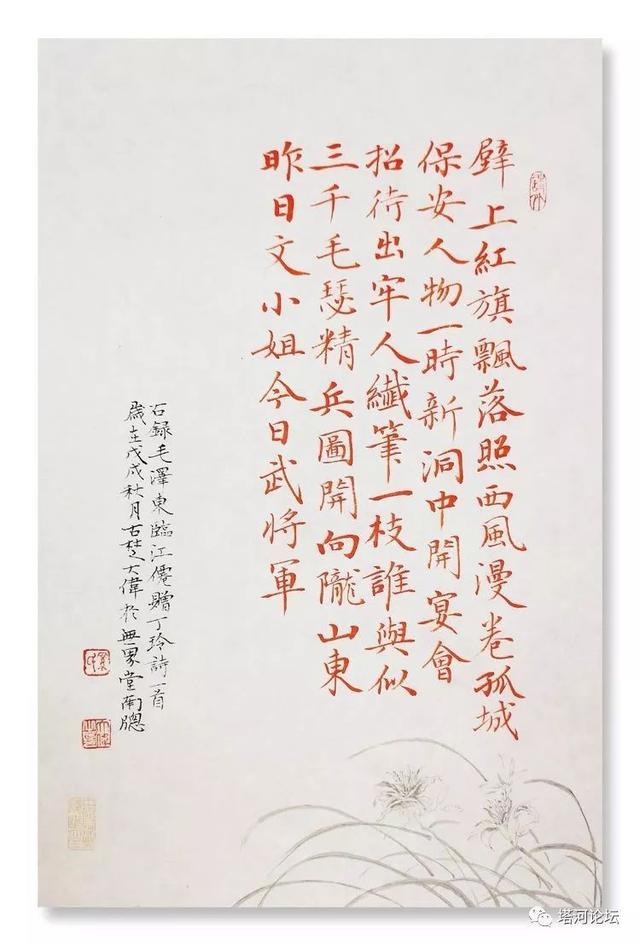 壁上紅旗飄落照西風漫卷孤城
保安人物一時新洞中開宴會
招待出牢人纖筆一枝誰與似
三千毛瑟精兵圖開向隴山東
昨日文小姐今日武將軍
右錄毛澤東臨江僊贈丁玲詩一首
歲在戊戌秋月古楚大偉於無象堂南牕
塔河论坛